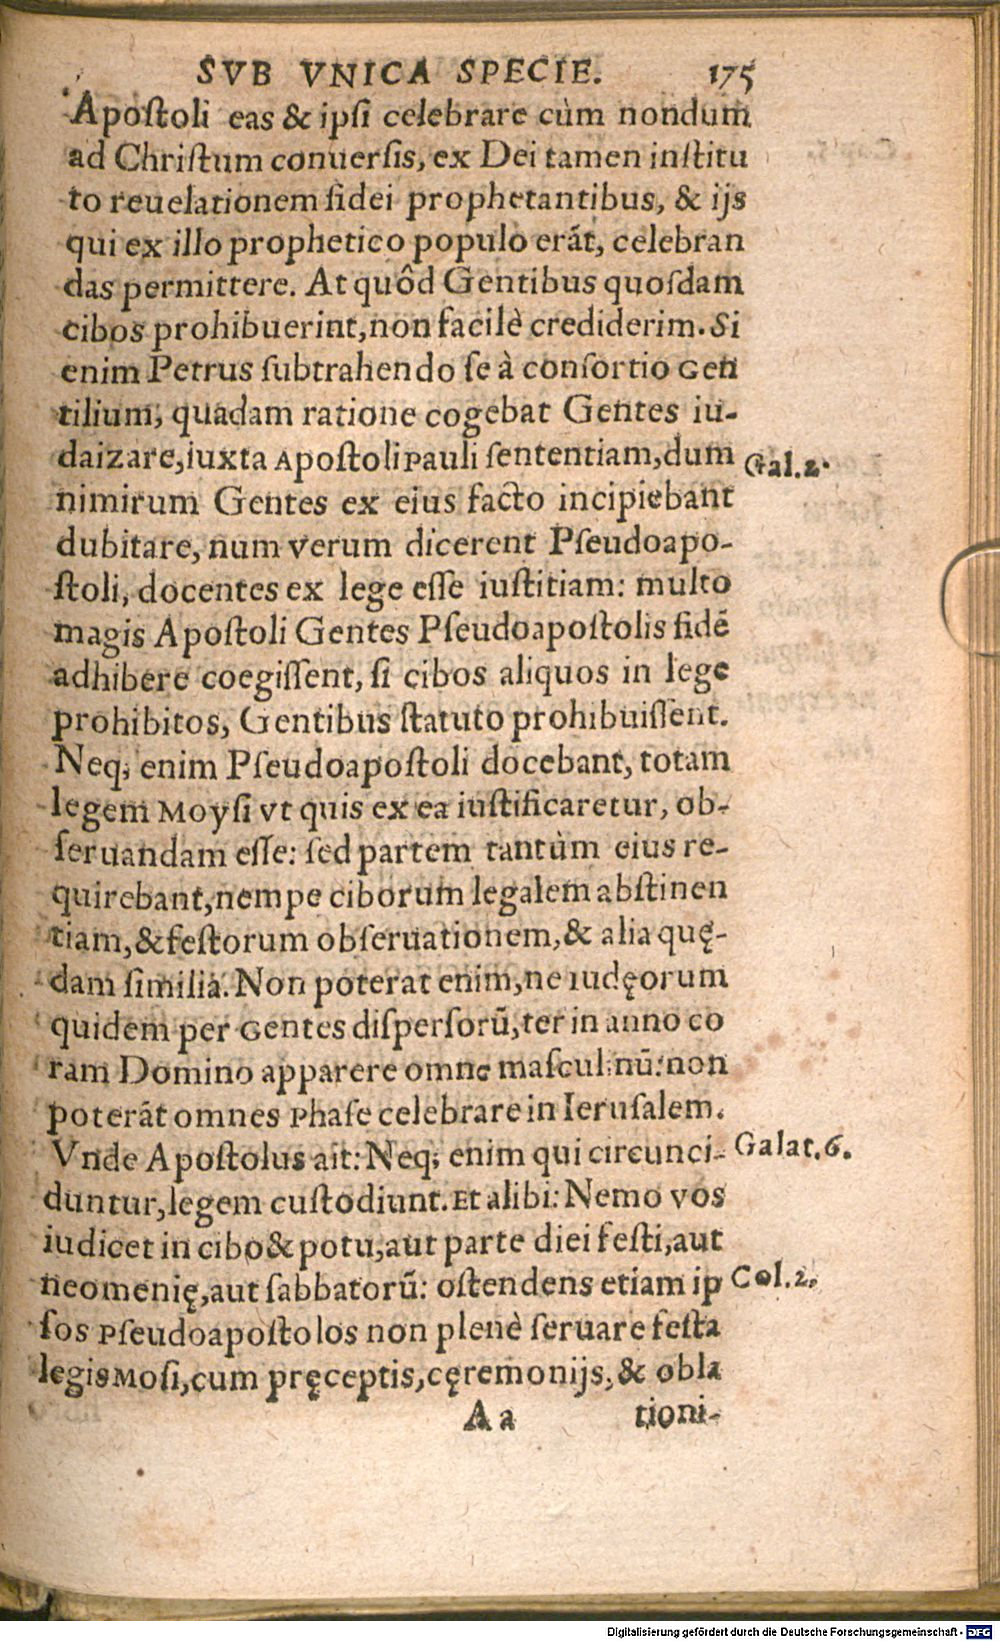 SVB VNICA SPECIE. 175
Apostoli eas & ipsi celebrare cùm nondum
ad Christum conuersis, ex Dei tamen institu
to reuelationem fidei prophetantibus, & ijs
qui ex illo prophetico populo erãt, celebran
das permittere. At quôd Gentibus quosdam
cibos prohibuerint, non facilè crediderim. Si
enim Petrus subtrahendo se à consortio Gen
tilium, quadam ratione cogebat Gentes iu-
daizare, iuxta Apostoli Pauli sententiam, dum Gal. 2.
nimirum Gentes ex eius facto incipiebant
dubitare, num verum dicerent Pseudoapo-
stoli, docentes ex lege esse iustitiam: multo
magis Apostoli Gentes Pseudoapostolis fidẽ
adhibere coegissent, si cibos aliquos in lege
prohibitos, Gentibus statuto prohibuissent.
Neq; enim Pseudoapostoli docebant, totam
legem Moysi vt quis ex ea iustificaretur, ob-
seruandam esse: sed partem tantùm eius re-
quirebant, nempe ciborum legalem abstinen
tiam, & festorum obseruationem, & alia quę-
dam similia. Non poterat enim, ne iudęorum
quidem per Gentes dispersorũ, ter in anno co
ram Domino apparere omne masculinũ: non
poterãt omnes Phase celebrare in Ierusalem.
Vnde Apostolus ait: Neq; enim qui circunci- Galat. 6.
duntur, legem custodiunt. Et alibi: Nemo vos
iudicet in cibo & potu, aut parte diei festi, aut
neomenię, aut sabbatorũ: ostendens etiam ip Col. 2.
sos Pseudoapostolos non plenè seruare festa
legis Mosi, cum pręceptis, cęremonijs, & obla
Aa tioni-
Digitalisierung gefördert durch die Deutsche Forschungsgemeinschaft - DFG